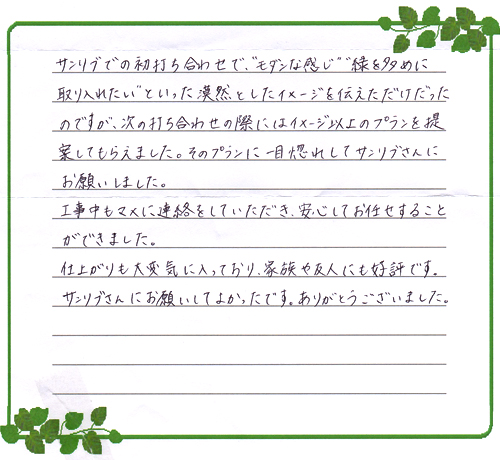 サンリブでの初打ち合わせで、"モダンな感じ""緑を多めに
取り入れたい"といった漠然としたイメージを伝えただけだった
のですが、次の打ち合わせの際にはイメージ以上のプランを提
案してもらえました。そのプランに一目惚れしてサンリブさんに
お願いしました。
工事中もマメに連絡をしていただき、安心してお任せすること
ができました。
仕上がりも大変気に入っており、家族や友人にも好評です。
サンリブさんにお願いしてよかったです。ありがとうございました。